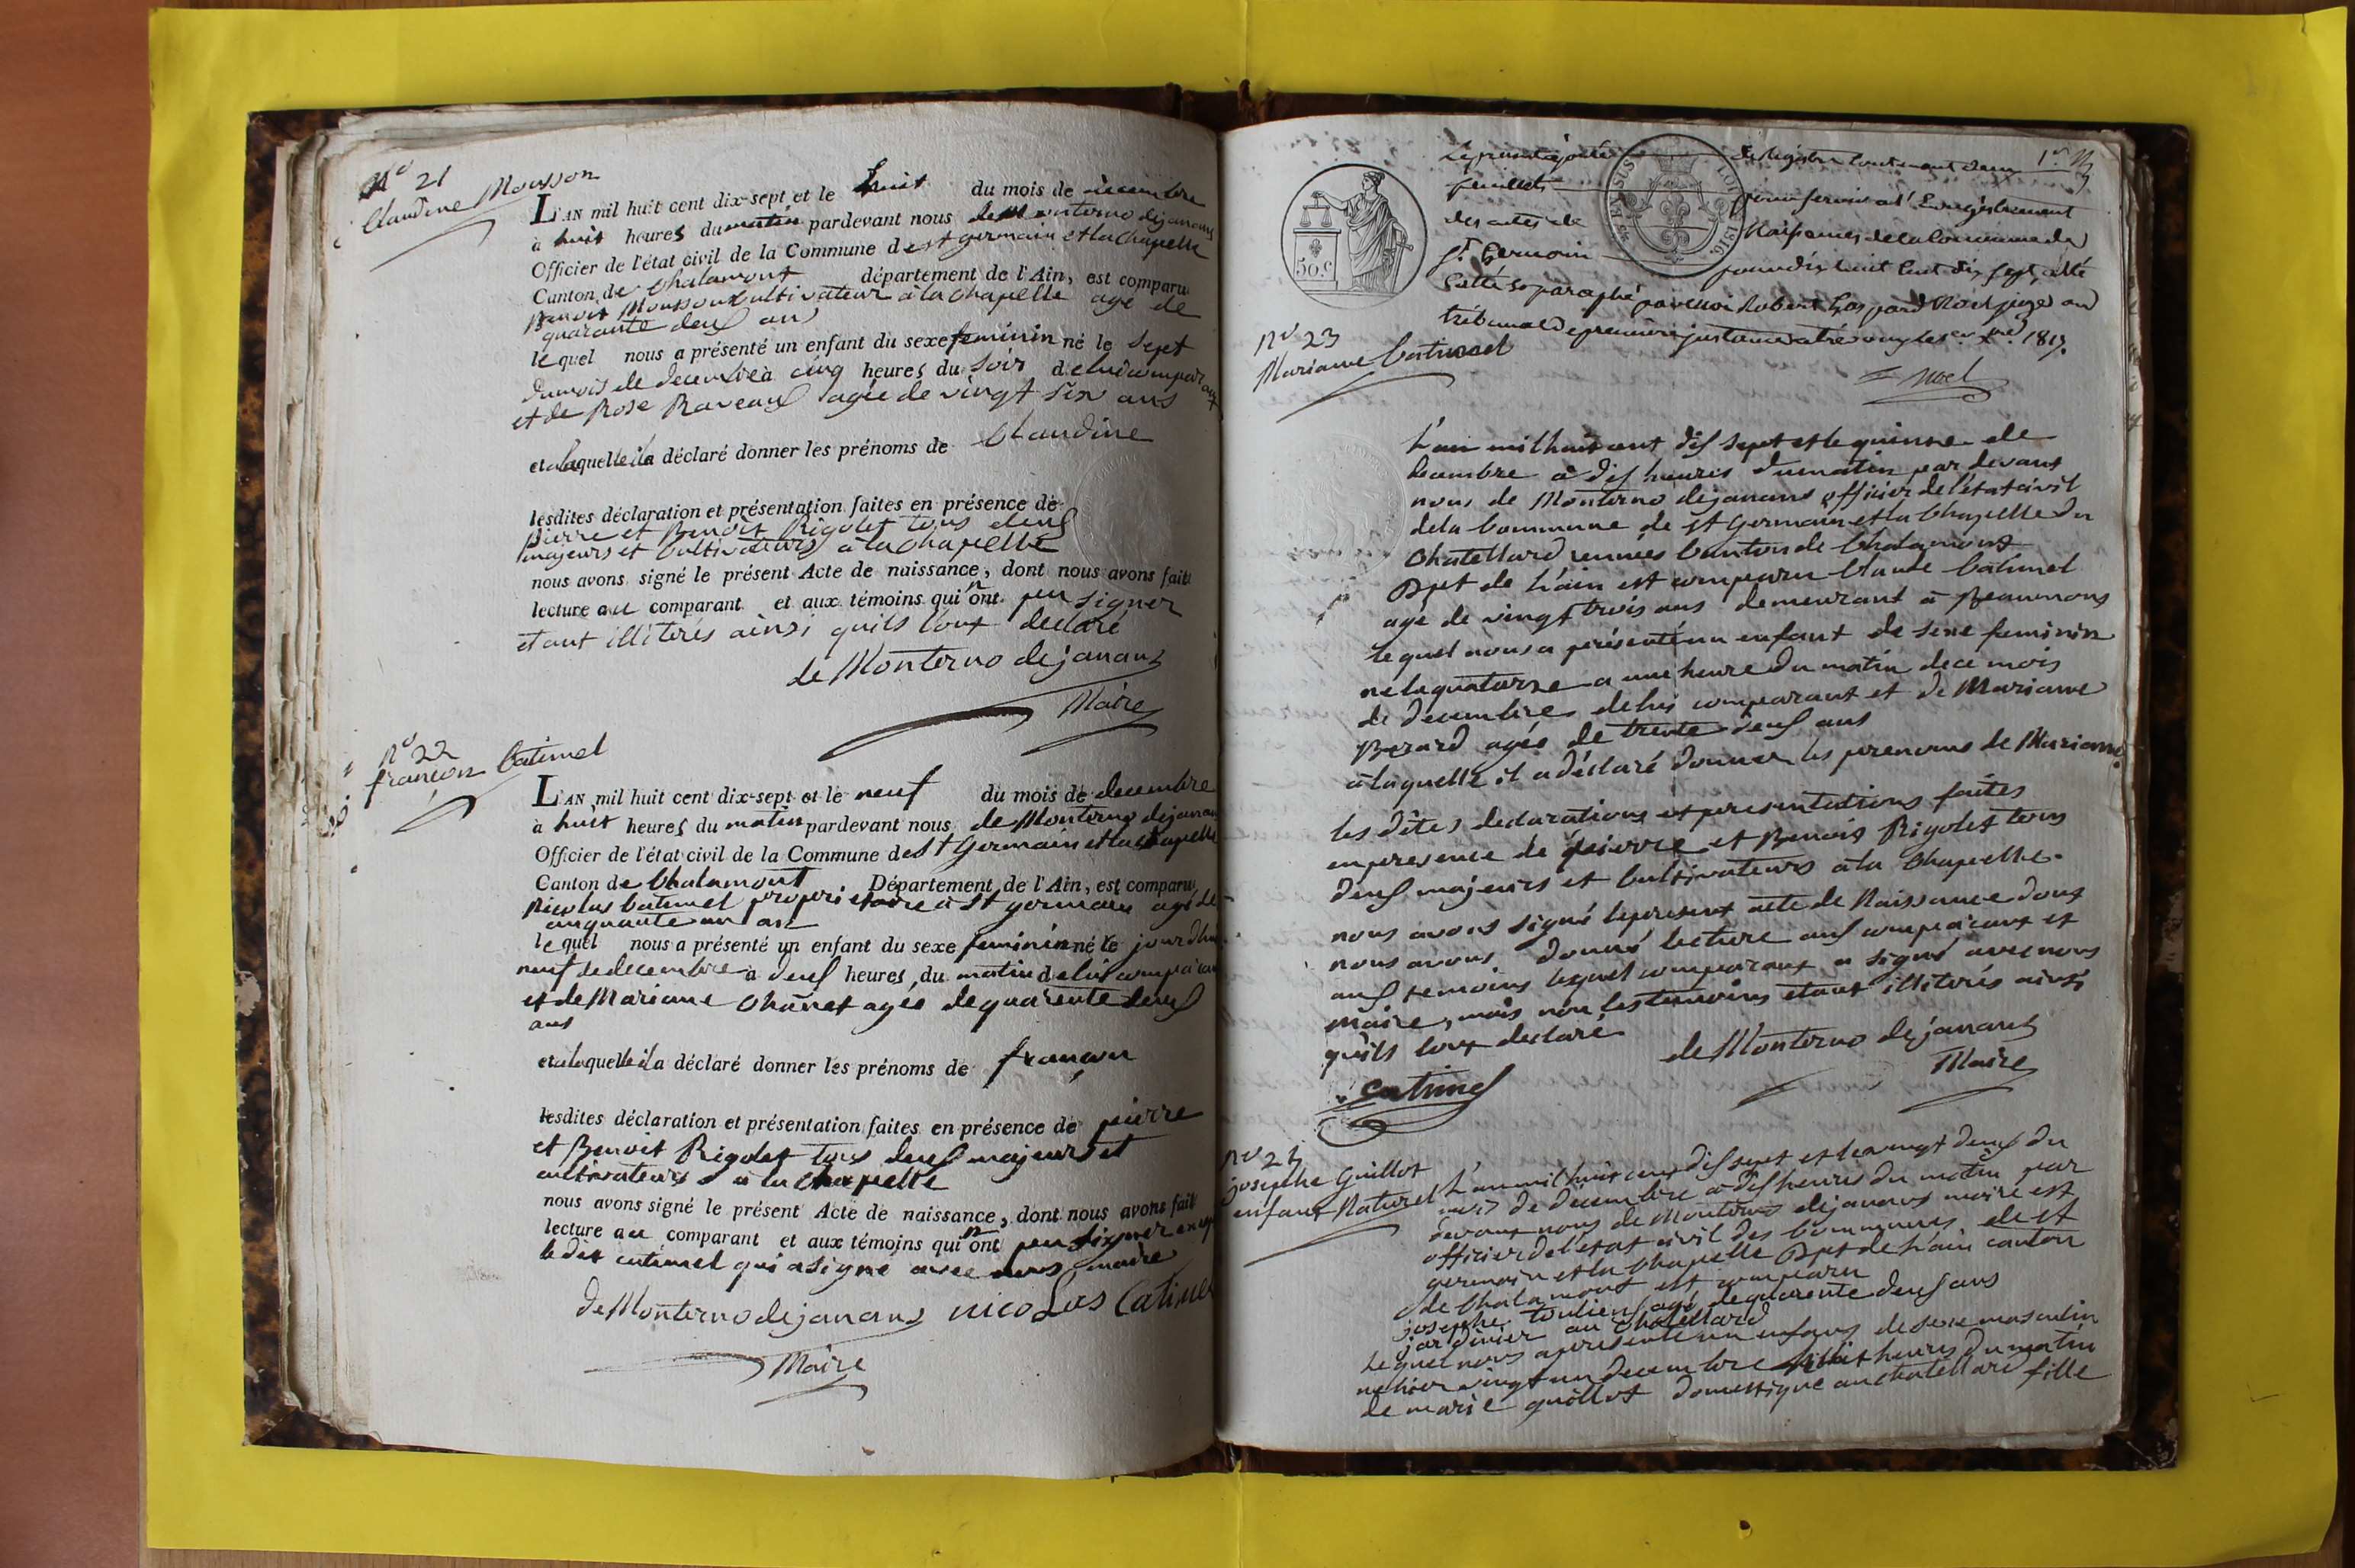 N° 21
Claudine Mousson
L'AN mil huit cent dix-sept et le huit du mois de decembre
à huit heures du matin pardevant nous de Monterno dejanans
Officier de l'état civil de la Commune de st germain et la Chapelle
Canton de Chalamont département de l'Ain, est comparu
Benoit Mousson Cultivateur à la Chapelle agé de
quarante deux ans
lequel nous a présenté un enfant du sexe feminin né le sept
du mois de decembre à cinq heures du soir de lui comparant
et de Rose Raveaux agée de vingt six ans
et a laquelle il a déclaré donner les prénoms de Claudine
lesdites déclaration et présentation faites en présence de
pierre et Benoit Rigolet tous deux
majeurs et Cultivateurs à la Chapelle
nous avons signé le présent Acte de naissance, dont nous avons fait
lecture au comparant et aux témoins qui n'ont peu signer
etant illiterés ainsi quils l'ont declaré
de Monterno dejanans
Maire
N° 22
françon Catimel
L'AN mil huit cent dix-sept et le neuf du mois de decembre
à huit heures du matin pardevant nous de Monterno dejanans
Officier de l'état civil de la Commune de St Germain et la Chapelle
Canton de Chalamont Département de l'Ain, est comparu
Nicolas Catimel proprietaire a St germain agé de
cinquante un ans
lequel nous a présenté un enfant du sexe feminin né le jourdhui
neuf de decembre à deux heures, du matin de lui comparant
et de Mariane Chanet agée de quarente deux
ans
et a laquelle il a déclaré donner les prénoms de françon
lesdites déclaration et présentation faites en présence de pierre
et Benoit Rigolet tous deux majeurs et
cultivateurs à la Chapelle
nous avons signé le présent Acte de naissance, dont nous avons fait
lecture au comparant et aux témoins qui n'ont peu signer excepté
le dit catimel qui a signé avec nous maire
de Monterno dejanans nicolas Catimel
Maire
Le present ajouté de Registre contenant deux 1er
feuillets pour servir a l'Enregistrement
des actes de Naissances de la Commune de
St Germain pour dix huit cent dix sept, a été
Cotté & paraphé par moi Robert Gaspard Noel juge au
tribunal de premiere instance de trevoux le 1817.
Noel
50.C
LOI
1816
N° 23
Mariane Catimel
L'an mil huit cent dix sept et le quinze de
decembre à dix heures du matin par devant
nous de Monterno dejanans officier de l'état civil
de la Commune de St Germain et la Chapelle du
Chatellard réunies Canton de Chalamont
Dpt de l'ain est comparu Claude Catimel
agé de vingt trois ans demeurant à Beaumons
lequel nous a présenté un enfant de sexe feminin
né le quatorze a une heure du matin de ce mois
de decembre de lui comparant et de Mariane
Berard agée de trente deux ans
a laquelle il a déclaré donner les prenoms de Mariane
les dites declarations et presentations faites
en presence de pierre et Benoit Rigolet tous
deux majeurs et Cultivateurs à la Chapelle.
nous avons signé le present acte de Naissance dont
nous avons donné lecture aux comparant et
aux temoins lequel comparant a signé avec nous
maire, mais non les temoins etant illiterés ainsi
qu'ils l'ont declaré
de Monterno dejanans
Maire
Catimel
N° 24
josephe Guillot
enfant Naturel
L'an mil huit cent dix sept et le vingt deux du
mois de decembre a dix heures du matin par
devant nous de Monterno dejanans maire est
officier de l'état civil des Communes de st
germain et la Chapelle Dpt de l'ain canton
de Chalamont est comparu
josephe agé de quarente deux ans
jardinier au Chatellard
lequel nous a presenté un enfant de sexe masculin
né hier vingt un decembre à huit heures du matin
de marie guillot domestique au chatellard fille